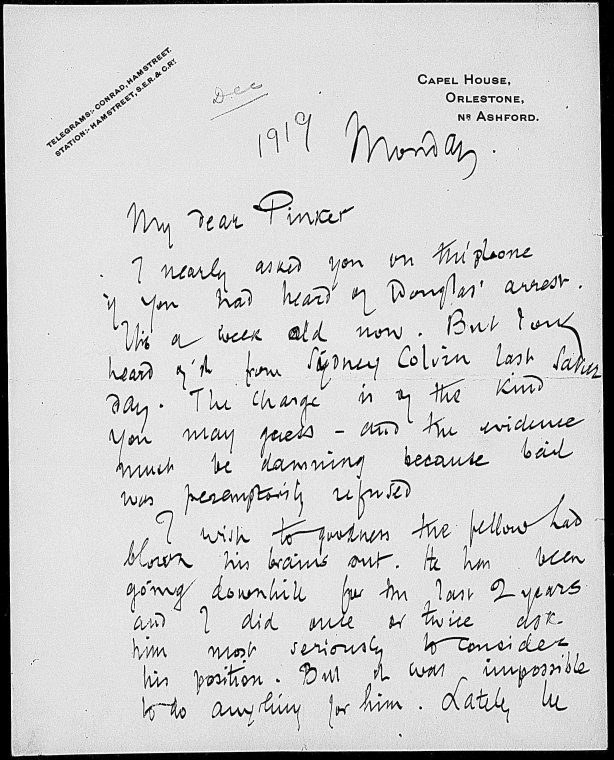 TELEGRAMS:- CONRAD, HAMSTREET.
STATION:- HAMSTREET, S.E.R. & C.RY.
CAPEL HOUSE,
ORLESTONE,
NR ASHFORD.
Dec
1919 Monday.
My dear Pinker
I nearly asked you on the phone
if you had heard of Douglas' arrest.
It is a week old now. But I only
heard of it from Sydney Colvin last Satur
day. The charge is of the kind
you may guess - and the evidence
must be damning because bail
was peremptorily refused
I wish to goodness the fellow had
blown his brains out. He has been
going downhill for the last 2 years
and I did once or twice ask
him most seriously to consider
his position. But it was impossible
to do anything for him. Lately he